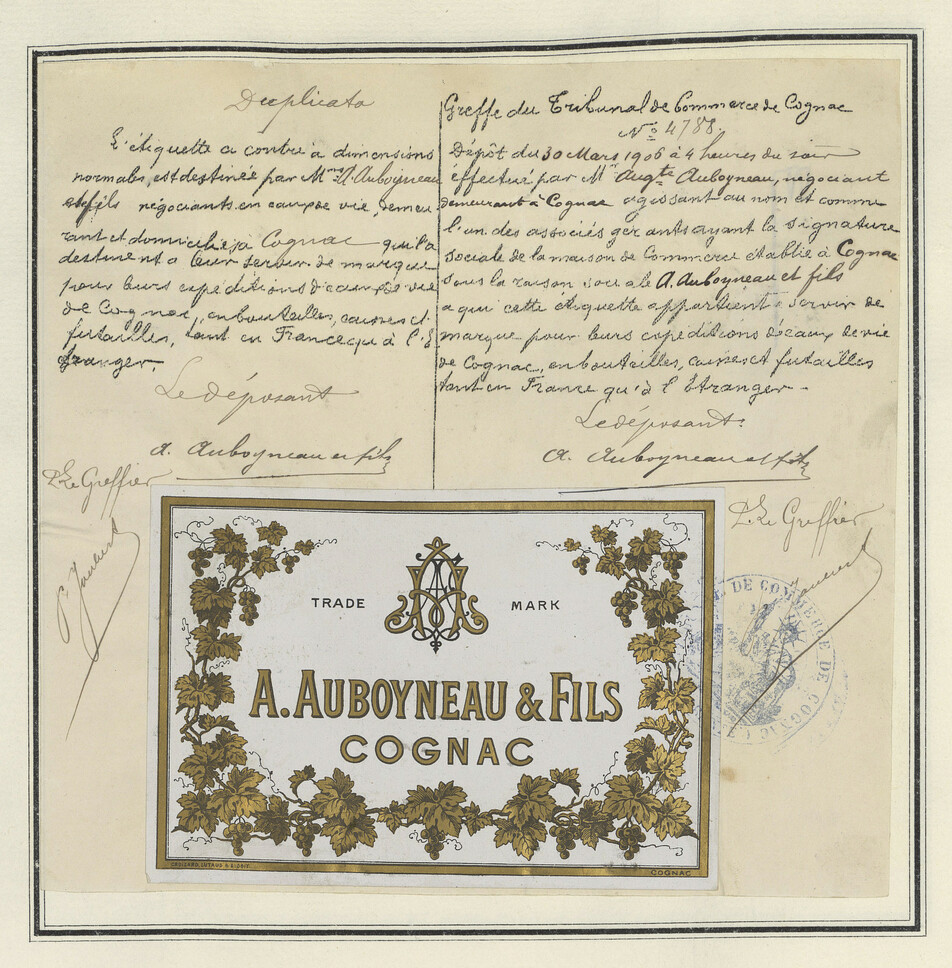 Duplicata
L'étiquette ci contre à dimensions
normales, est destinée par Mrs A. Auboyneau
et fils négociants en eaux de vie, demeu
rant et domiciliés à Cognac qui l'a
destinent à leur servir de marque
pour leurs expéditions d'eaux de vie
de Cognac, en bouteilles, caisses et
futailles, tant en France qu'à l'É
tranger.
Le déposant
A. Auboyneau et fils
P. Le Greffier
Greffe du Tribunal de Commerce de Cognac
N° 4788.
Dépôt du 30 Mars 1906 à 4 heures du soir
effectué par Mr Augte Auboyneau, négociant
demeurant à Cognac agissant au nom et comme
l'un des associés gérants ayant la signature
sociale de la maison de Commerce établie à Cognac
sous la raison sociale A. Auboyneau et fils
a qui cette étiquette appartient à servir de
marque pour leurs expéditions d'eaux de vie
de Cognac, en bouteilles, caisses et futailles
tant en France qu'à l'Étranger.
Le déposant:
A. Auboyneau et fils
P. Le Greffier
DE COMMERCE DE COGNAC
TRADE MARK
A. AUBOYNEAU & FILS
COGNAC
COGNAC